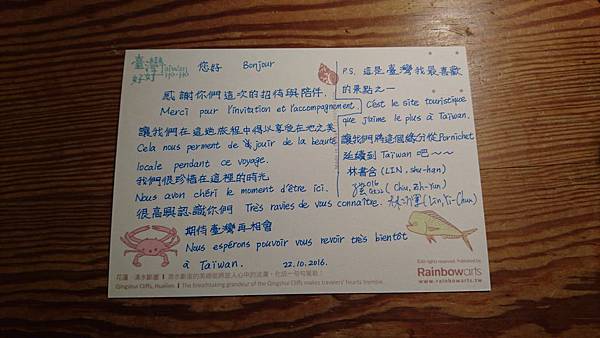 臺灣
好好
Taiwan
Ho-Ho
您好 Bonjour
感謝你們這次的招待與陪伴.
Merci pour l'invitation et l'accompagnement.
讓我們在這趟旅程中得以享受在地之美
Cela nous perment de jouir de la beauté
locale pendant ce voyage.
我們很珍惜在這裡的時光
Nous avon chéri le moment d'être ici.
很高興認識你們 Très ravies de vous connaître.
期待臺灣再相會
Nous espérons pouvoir vous revoir très bientôt
à Taïwan. 22.10.2016.
P.S. 這是臺灣我最喜歡
的景點之一
C'est le site touristique
que j'aime le plus à Taïwan.
讓我們將這個緣分從Pornichet
延續到Taïwan吧~~
林書含 (LIN, Shu-han)
(Chiu, Zh-Yun)
(Lin, Yi-Chun)
花蓮．清水斷崖 | 清水斷崖的美總能將旅人心中的波瀾，化成一句句驚歎！
Qingshui Cliffs, Hualien | The breathtaking grandeur of the Qingshui Cliffs makes travelers' hearts tremble.
©All rights reserved. Published by
Rainbowarts
www.rainbowarts.tw